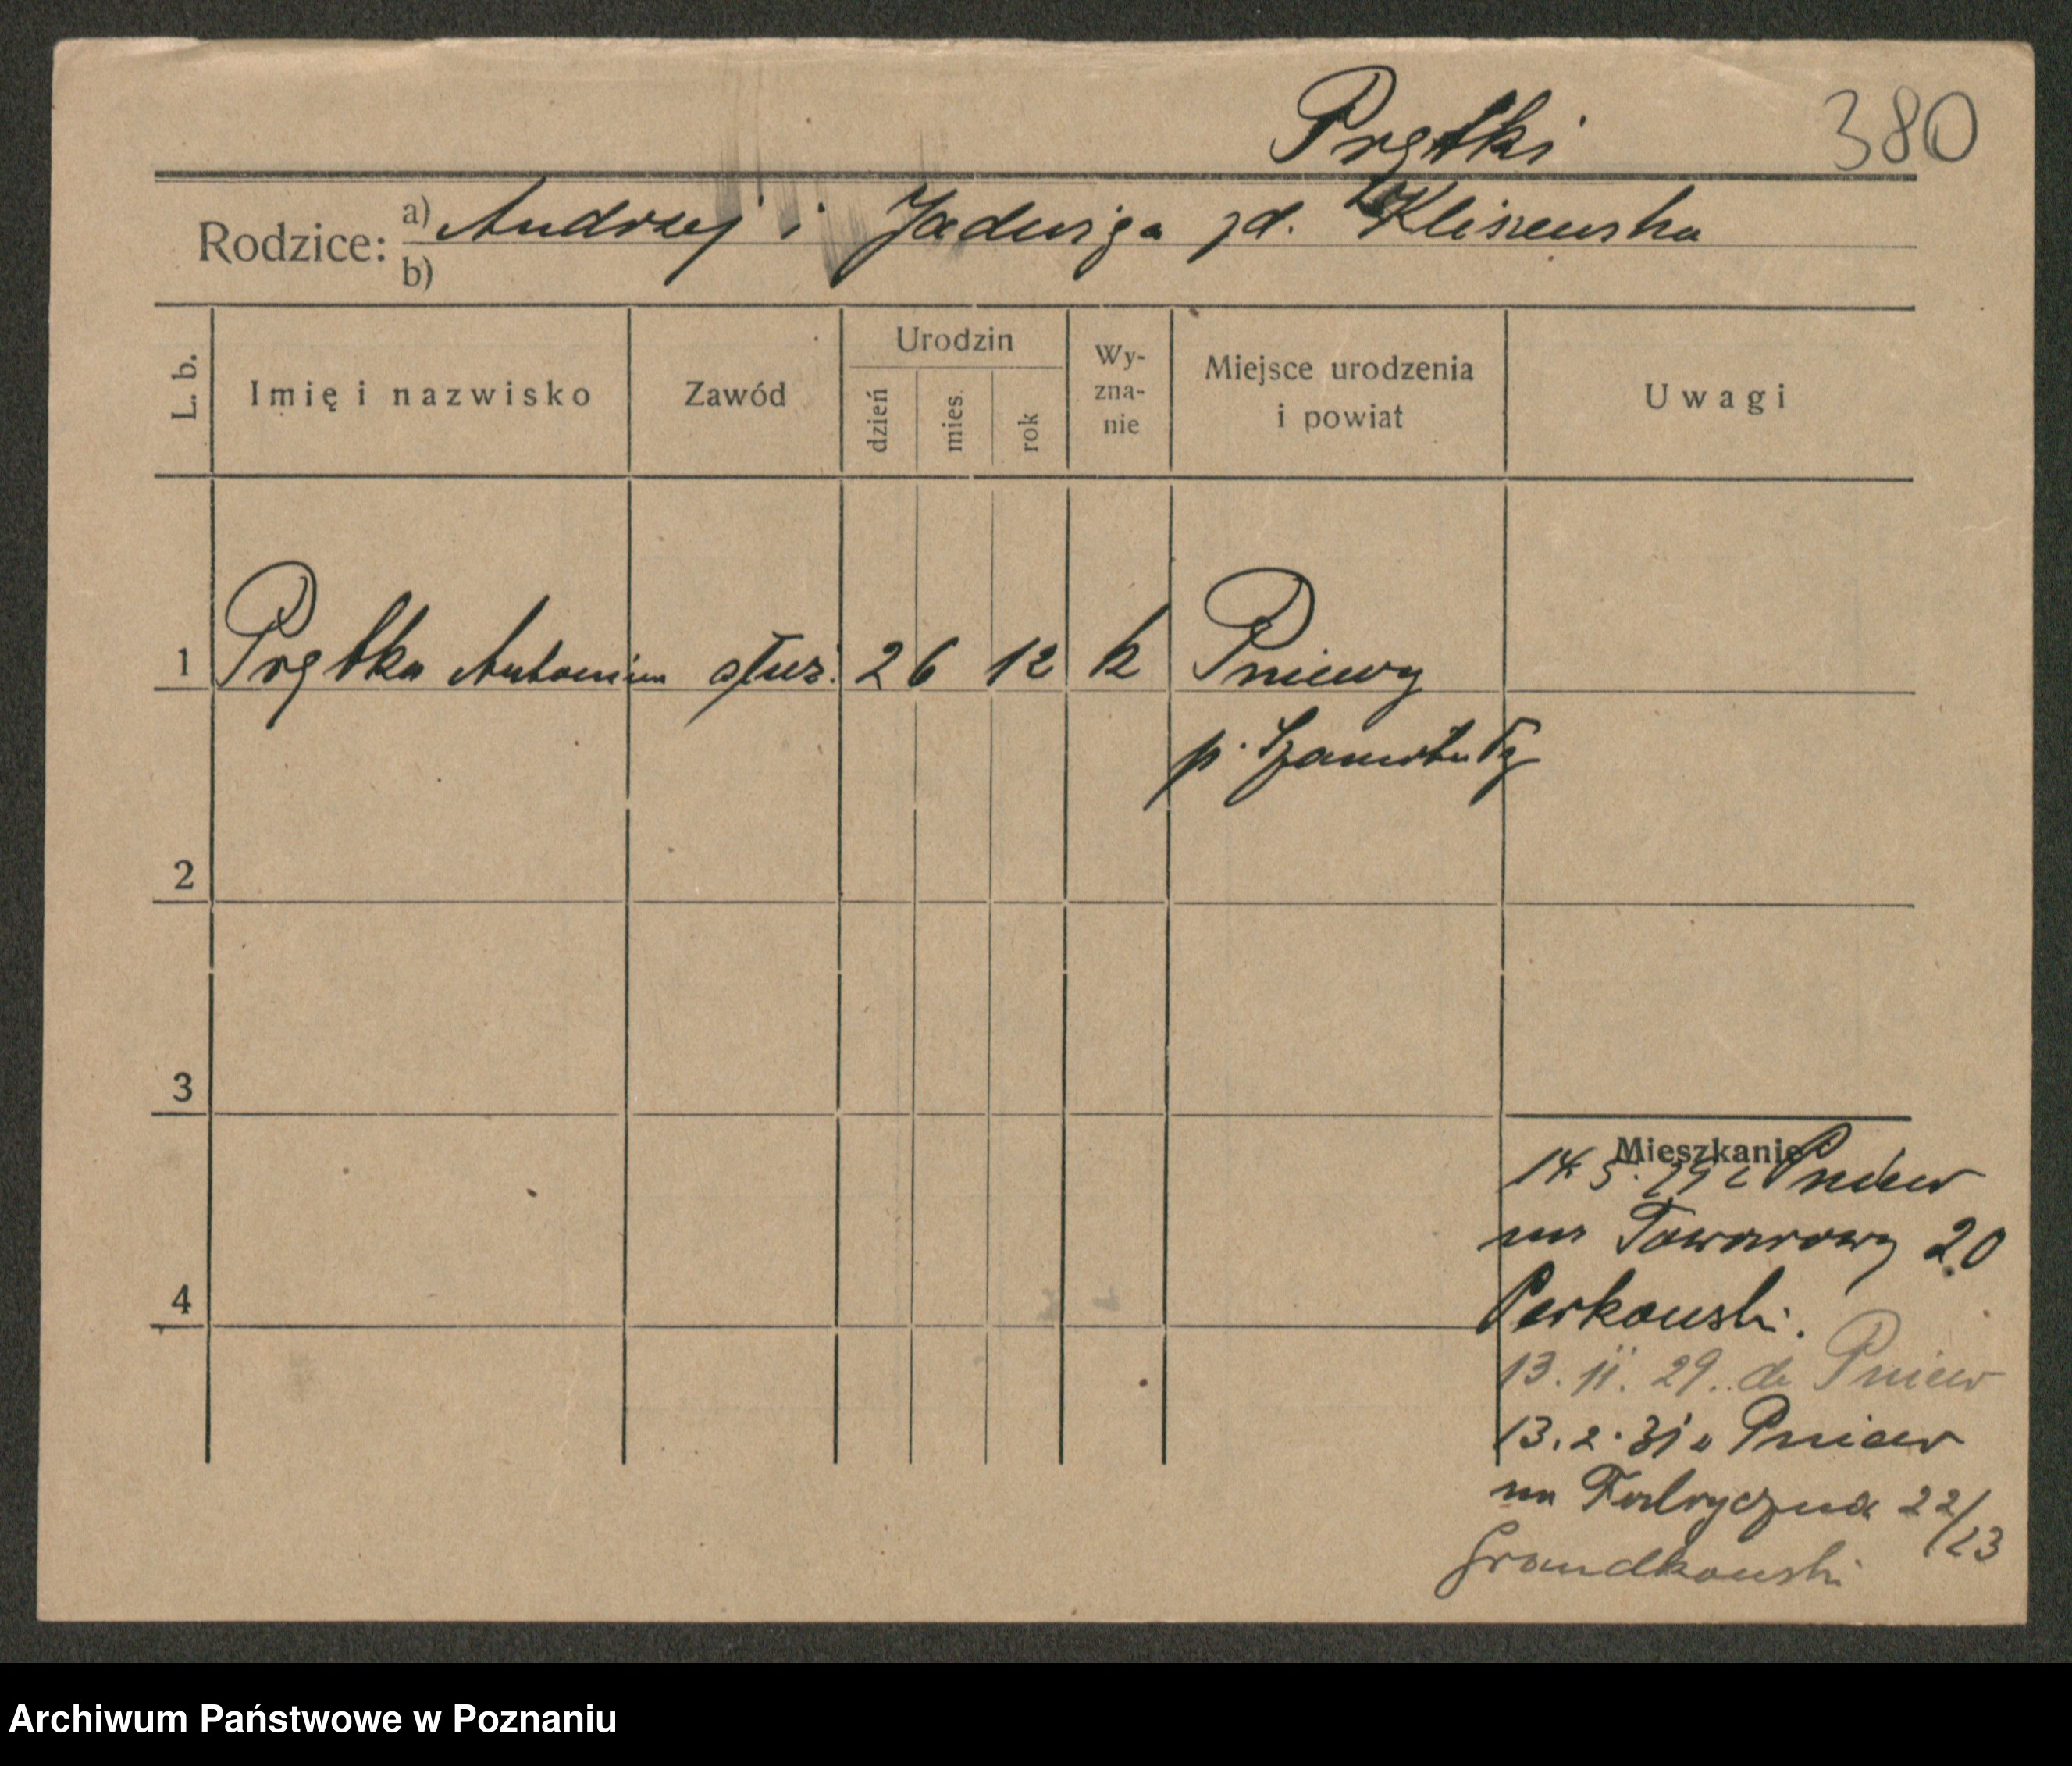 Prętki 380
Rodzice: a) Andrzej i Jadwiga zd. Kliszewska
b)
L. b. Imię i nazwisko Zawód Urodzin dzień mies. rok Wy-zna-nie Miejsce urodzenia i powiat Uwagi
1 Prętka Antonina służ. 2 6 12 k Pniewy
p. Szamotuły
2
3
Mieszkanie
14. 5. 29 z Pniew
na Towarowy 20
4
Perkowski.
13. 11. 29. do Pniew
13. 2. 31 z Pniew
na Fabryczna 22/23
Grandkowski
Archiwum Państwowe w Poznaniu